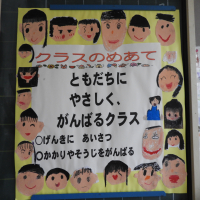 クラスのめあて
ともだちに
やさしく、
がんばるクラス
○げんきに あいさつ
○かかりやそうじをがんばる